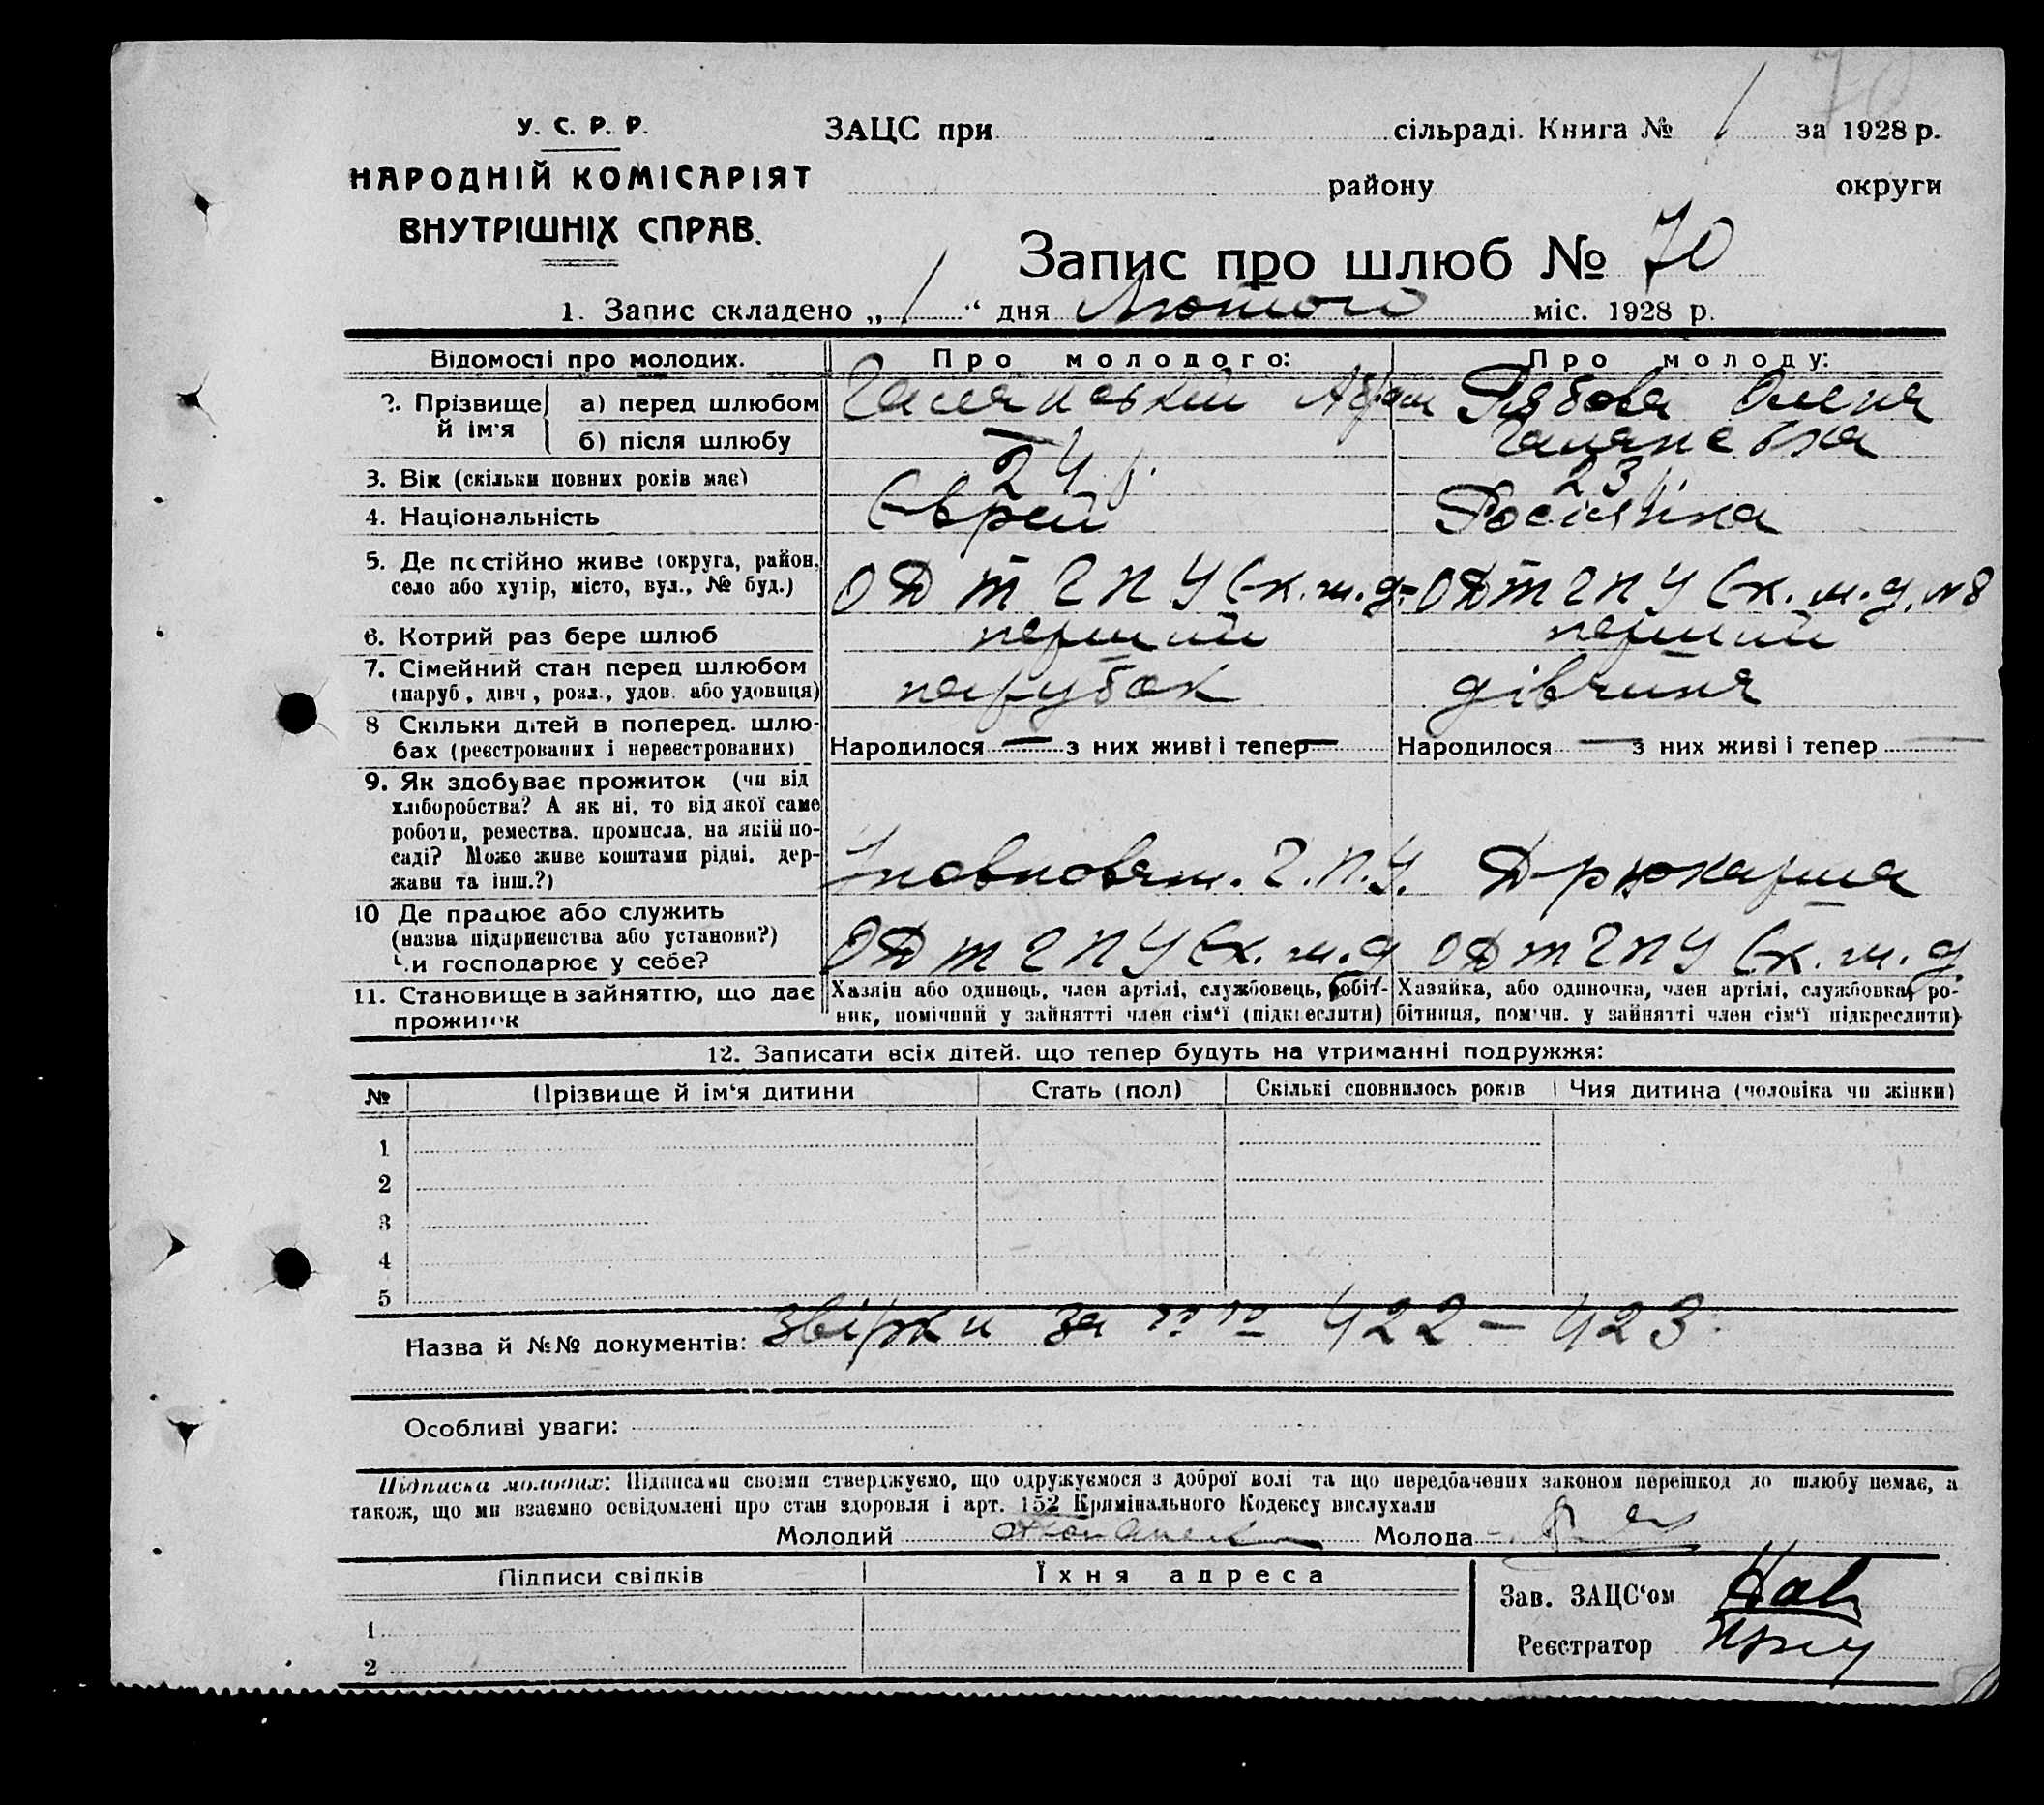 70
У. С. Р. Р.
НАРОДНІЙ КОМІСАРІЯТ
ВНУТРІШНІХ СПРАВ.
ЗАЦС при сільраді. Книга № 1 за 1928 р.
району округи
Запис про шлюб № 70
1. Запис складено „ 1 “ дня Лютого міс. 1928 р.
Відомості про молодих. Про молодого: Про молоду:
2. Прізвище й ім'я а) перед шлюбом Абрам Рябова Олена
б) після шлюбу —
3. Вік (скільки повних років має) 24 р. 23 р.
4. Національність Єврей Росіянка
5. Де постійно живе (округа, район, село або хутір, місто, вул., № буд.) ОДТ ГПУ Єк. м. д- ОДТ ГПУ Єк. м. д. № 8
6. Котрий раз бере шлюб перший перший
7. Сімейний стан перед шлюбом
(паруб., дівч., розл., удов. або удовиця) парубок дівчина
8 Скільки дітей в поперед. шлю-
бах (реєстрованих і нереєстрованих) Народилося — з них живі і тепер — Народилося — з них живі і тепер —
9. Як здобуває прожиток (чи від
хліборобства? А як ні, то від якої саме
роботи, ремества, промисла, на якій по-
саді? Може живе коштами рідні, дер-
жави та інш.?) Уповноваж. Г.П.У. Друкарша
10 Де працює або служить
(назва підприємства або установи?)
Чи господарює у себе? ОДТ ГПУ Єк. м. д ОДТ ГПУ Єк. м. д.
11. Становище в зайняттю, що дає
прожиток
Хазяїн або одинець, член артілі, службовець, робіт-
ник, помічний у зайнятті член сім'ї (підкреслити)
Хазяйка, або одиночка, член артілі, службовка, ро-
бітниця, помічн. у зайнятті член сім'ї підкреслити)
12. Записати всіх дітей, що тепер будуть на утриманні подружжя:
№ Прізвище й ім'я дитини Стать (пол) Скількі сповнилось років Чия дитина (чоловіка чи жінки)
1
2
3
4
5
Назва й №№ документів: звірки за №№ 422 — 423.
Особливі уваги:
Підписка молодих: Підписами своїми стверджуємо, що одружуємося з доброї волі та що передбачених законом перешкод до шлюбу немає, а
також, що ми взаємно освідомлені про стан здоровля і арт. 152 Кримінального Кодексу вислухали
Молодий Молода
Підписи свідків Їхня адреса
1
2
Зав. ЗАЦС'ом
Реєстратор